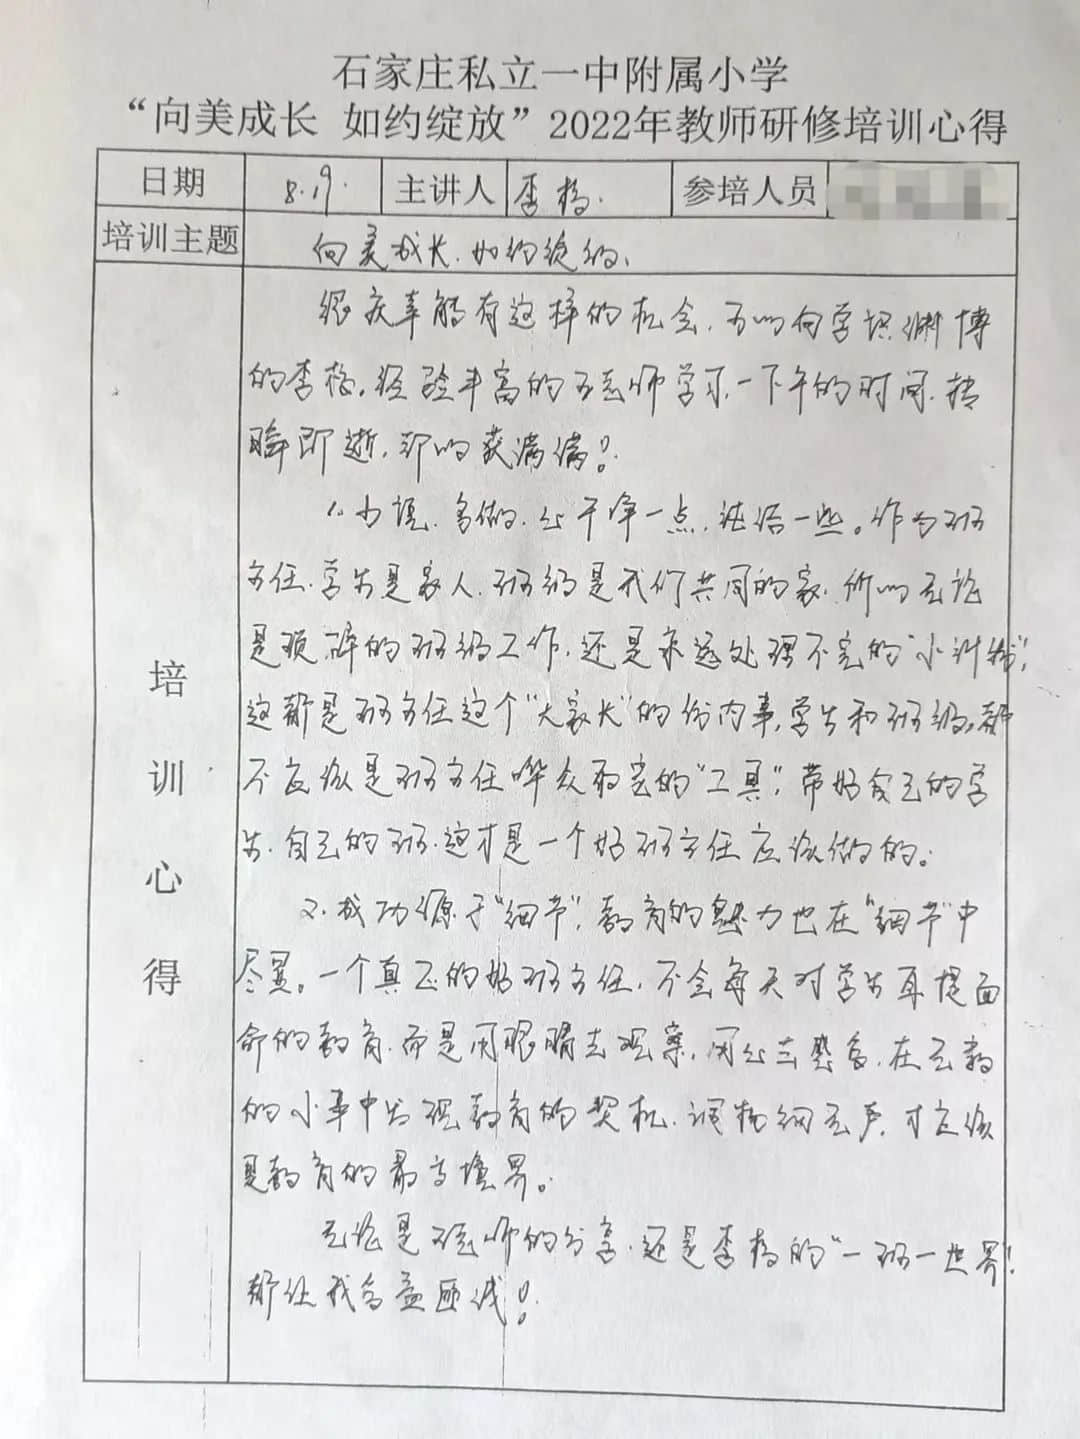 石家庄私立一中附属小学
“向美成长 如约绽放”2022年教师研修培训心得
日期 8.19. 主讲人 李杨. 参培人员
培训主题 向美成长.如约绽放.
培训心得
很庆幸能有这样的机会,可以向学识渊博
的李杨,经验丰富的王老师学习,一下午的时间,转
瞬即逝,却收获满满!
1.少说、多做、心干净一点,活洽一些。作为班
主任,学生是家人,班级是我们共同的家,所以无论
是琐碎的班级工作,还是永远处理不完的“小纠纷”,
这都是班主任这个“大家长”的份内事,学生和班级,都
不应该是班主任哗众取宠的“工具”,带好自己的学
生,自己的班,这才是一个好班主任应该做的。
2.成功源于“细节”,教育的魅力也在“细节”中
尽显。一个真正的好班主任,不会每天对学生耳提面
命的教育,而是用眼睛去观察,用心去感受,在无数
的小事中发现教育的契机,润物细无声,才应该
是教育的最高境界。
无论是老师的分享,还是李杨的“一班一世界”
都让我受益匪浅!